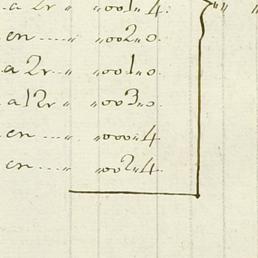 a 2r " "001"4.
en ..... " "002"0
a 2r " "001"0
a 12r " "003"0
en ..... " "000"4
en ..... " "002"4